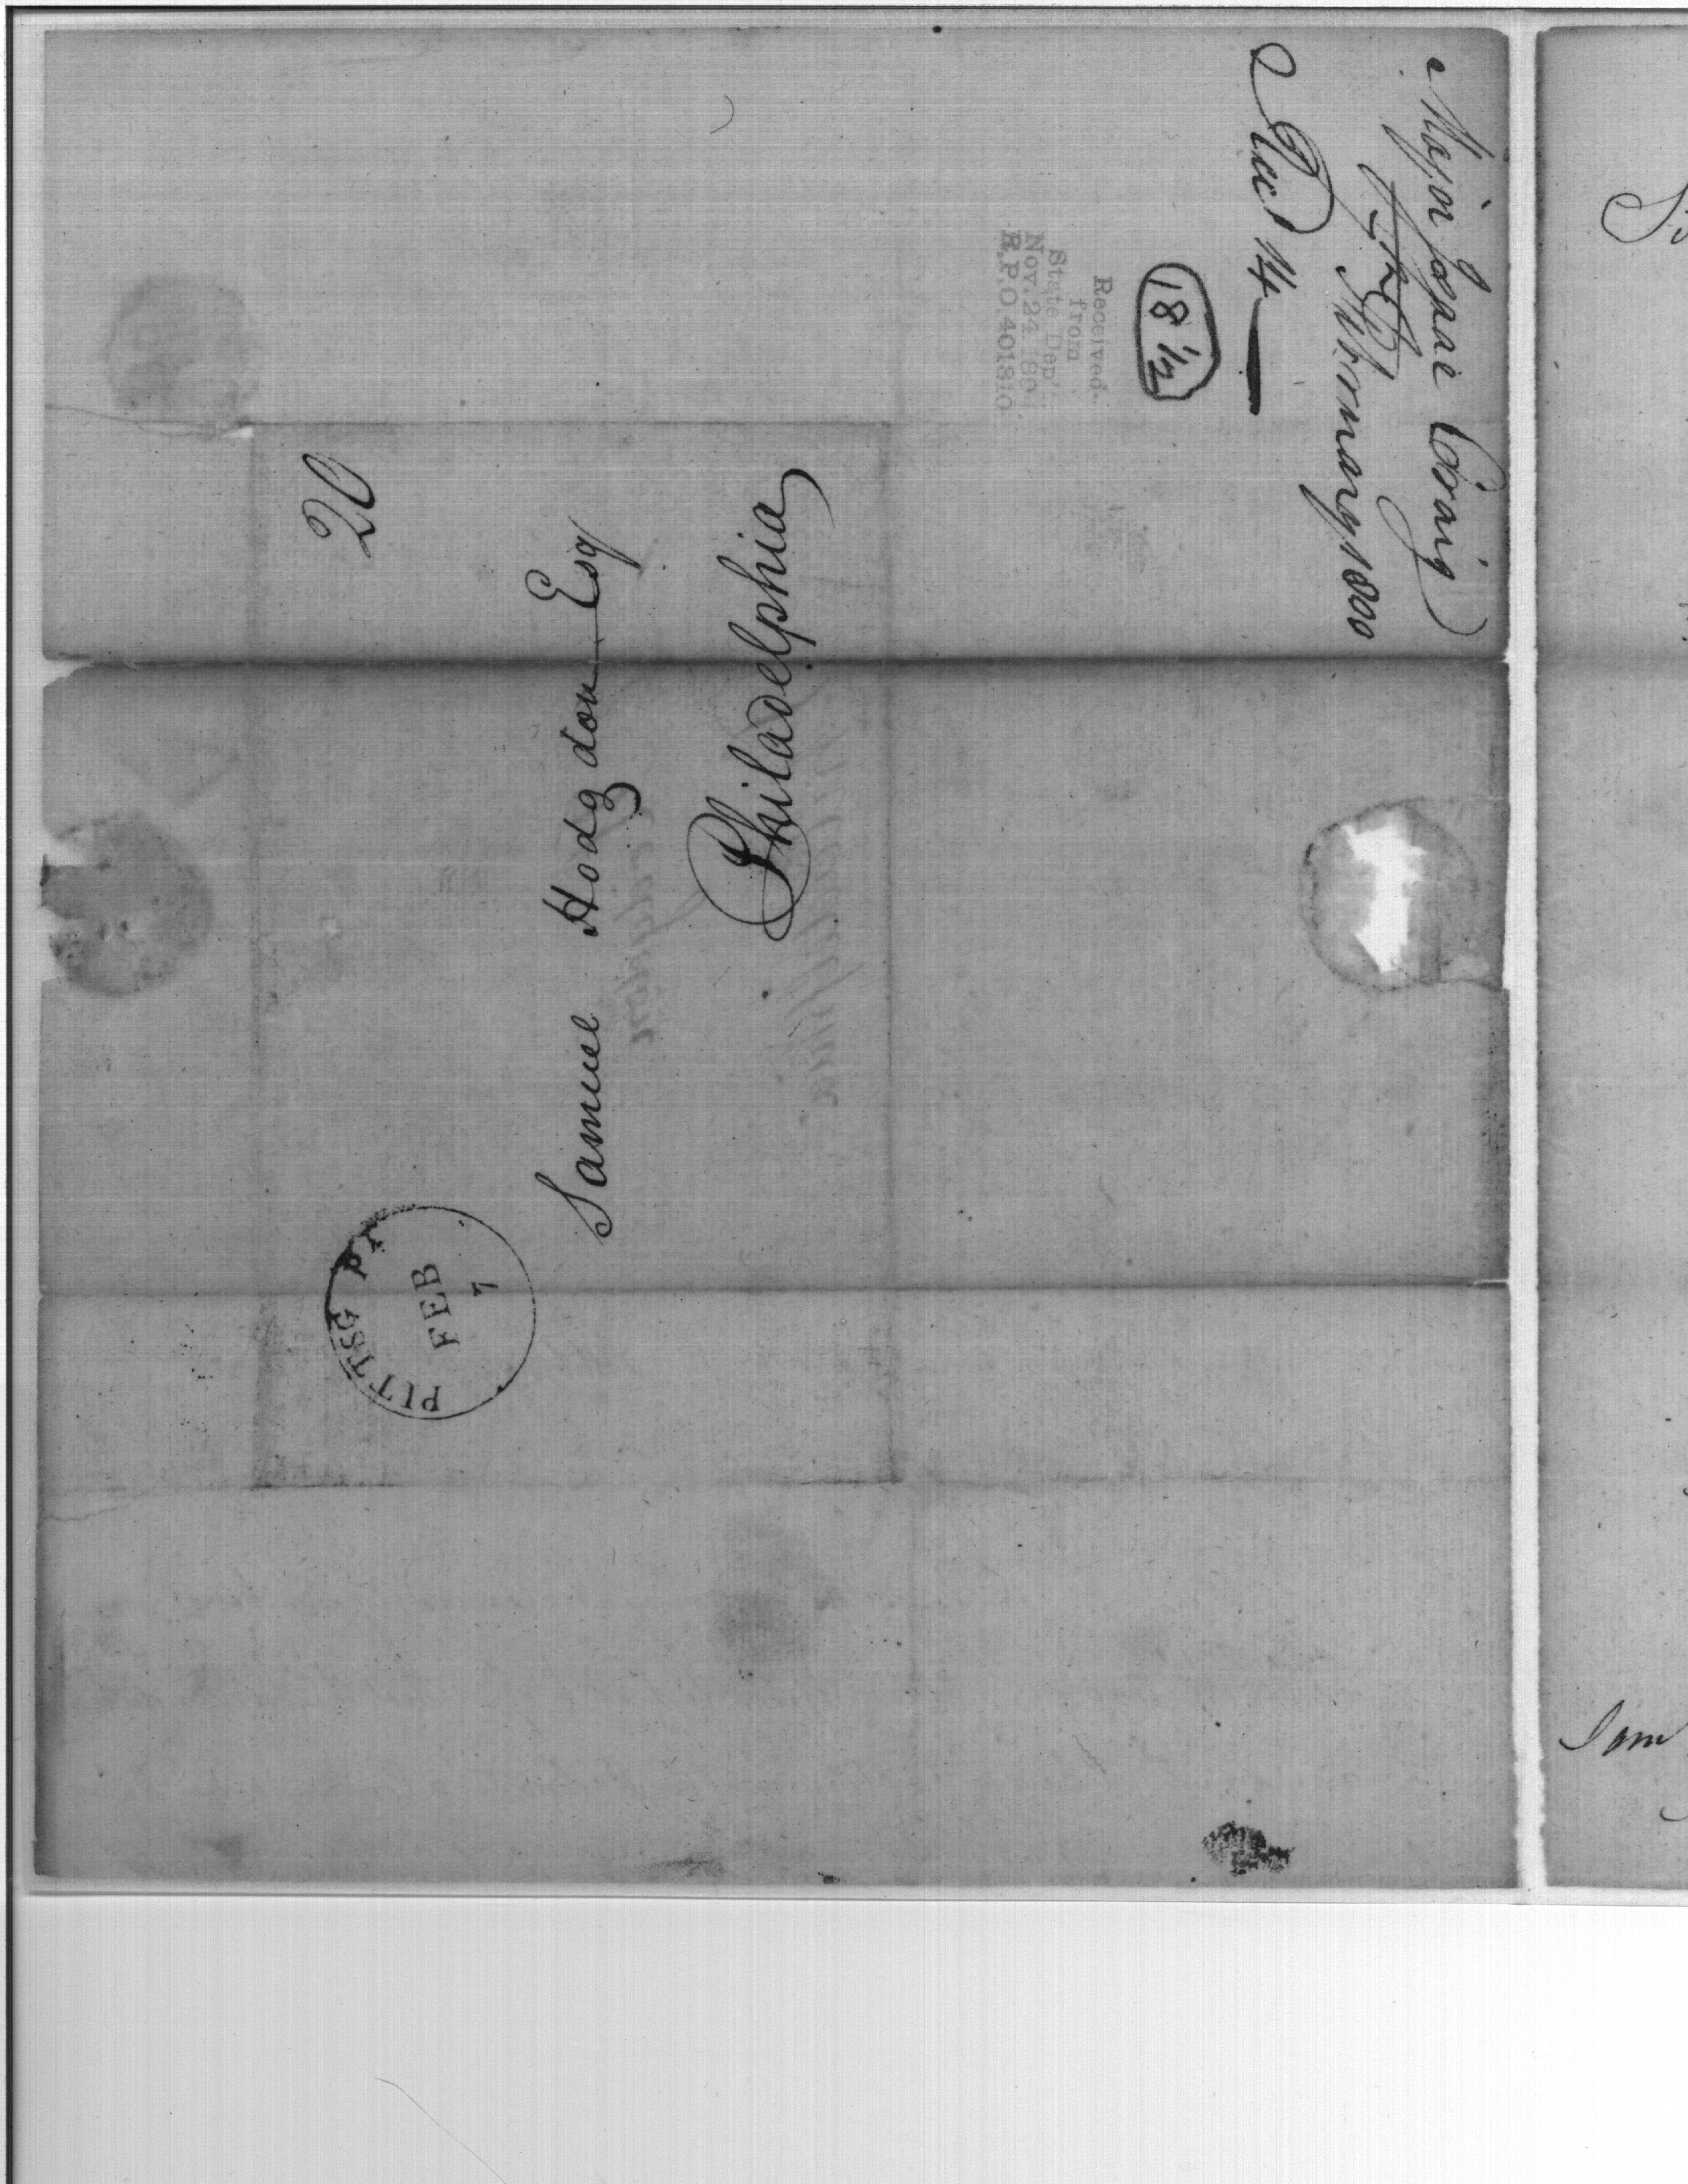 Major Isaac Craig
7th February 1800
Recd 14
18 1/2
Received
from
State Dep't
Nov. 24 1894
R.P.O. 401310
20
PITTSG PA
FEB
7
Samuel Hodgdon Esq
Philadelphia
I am